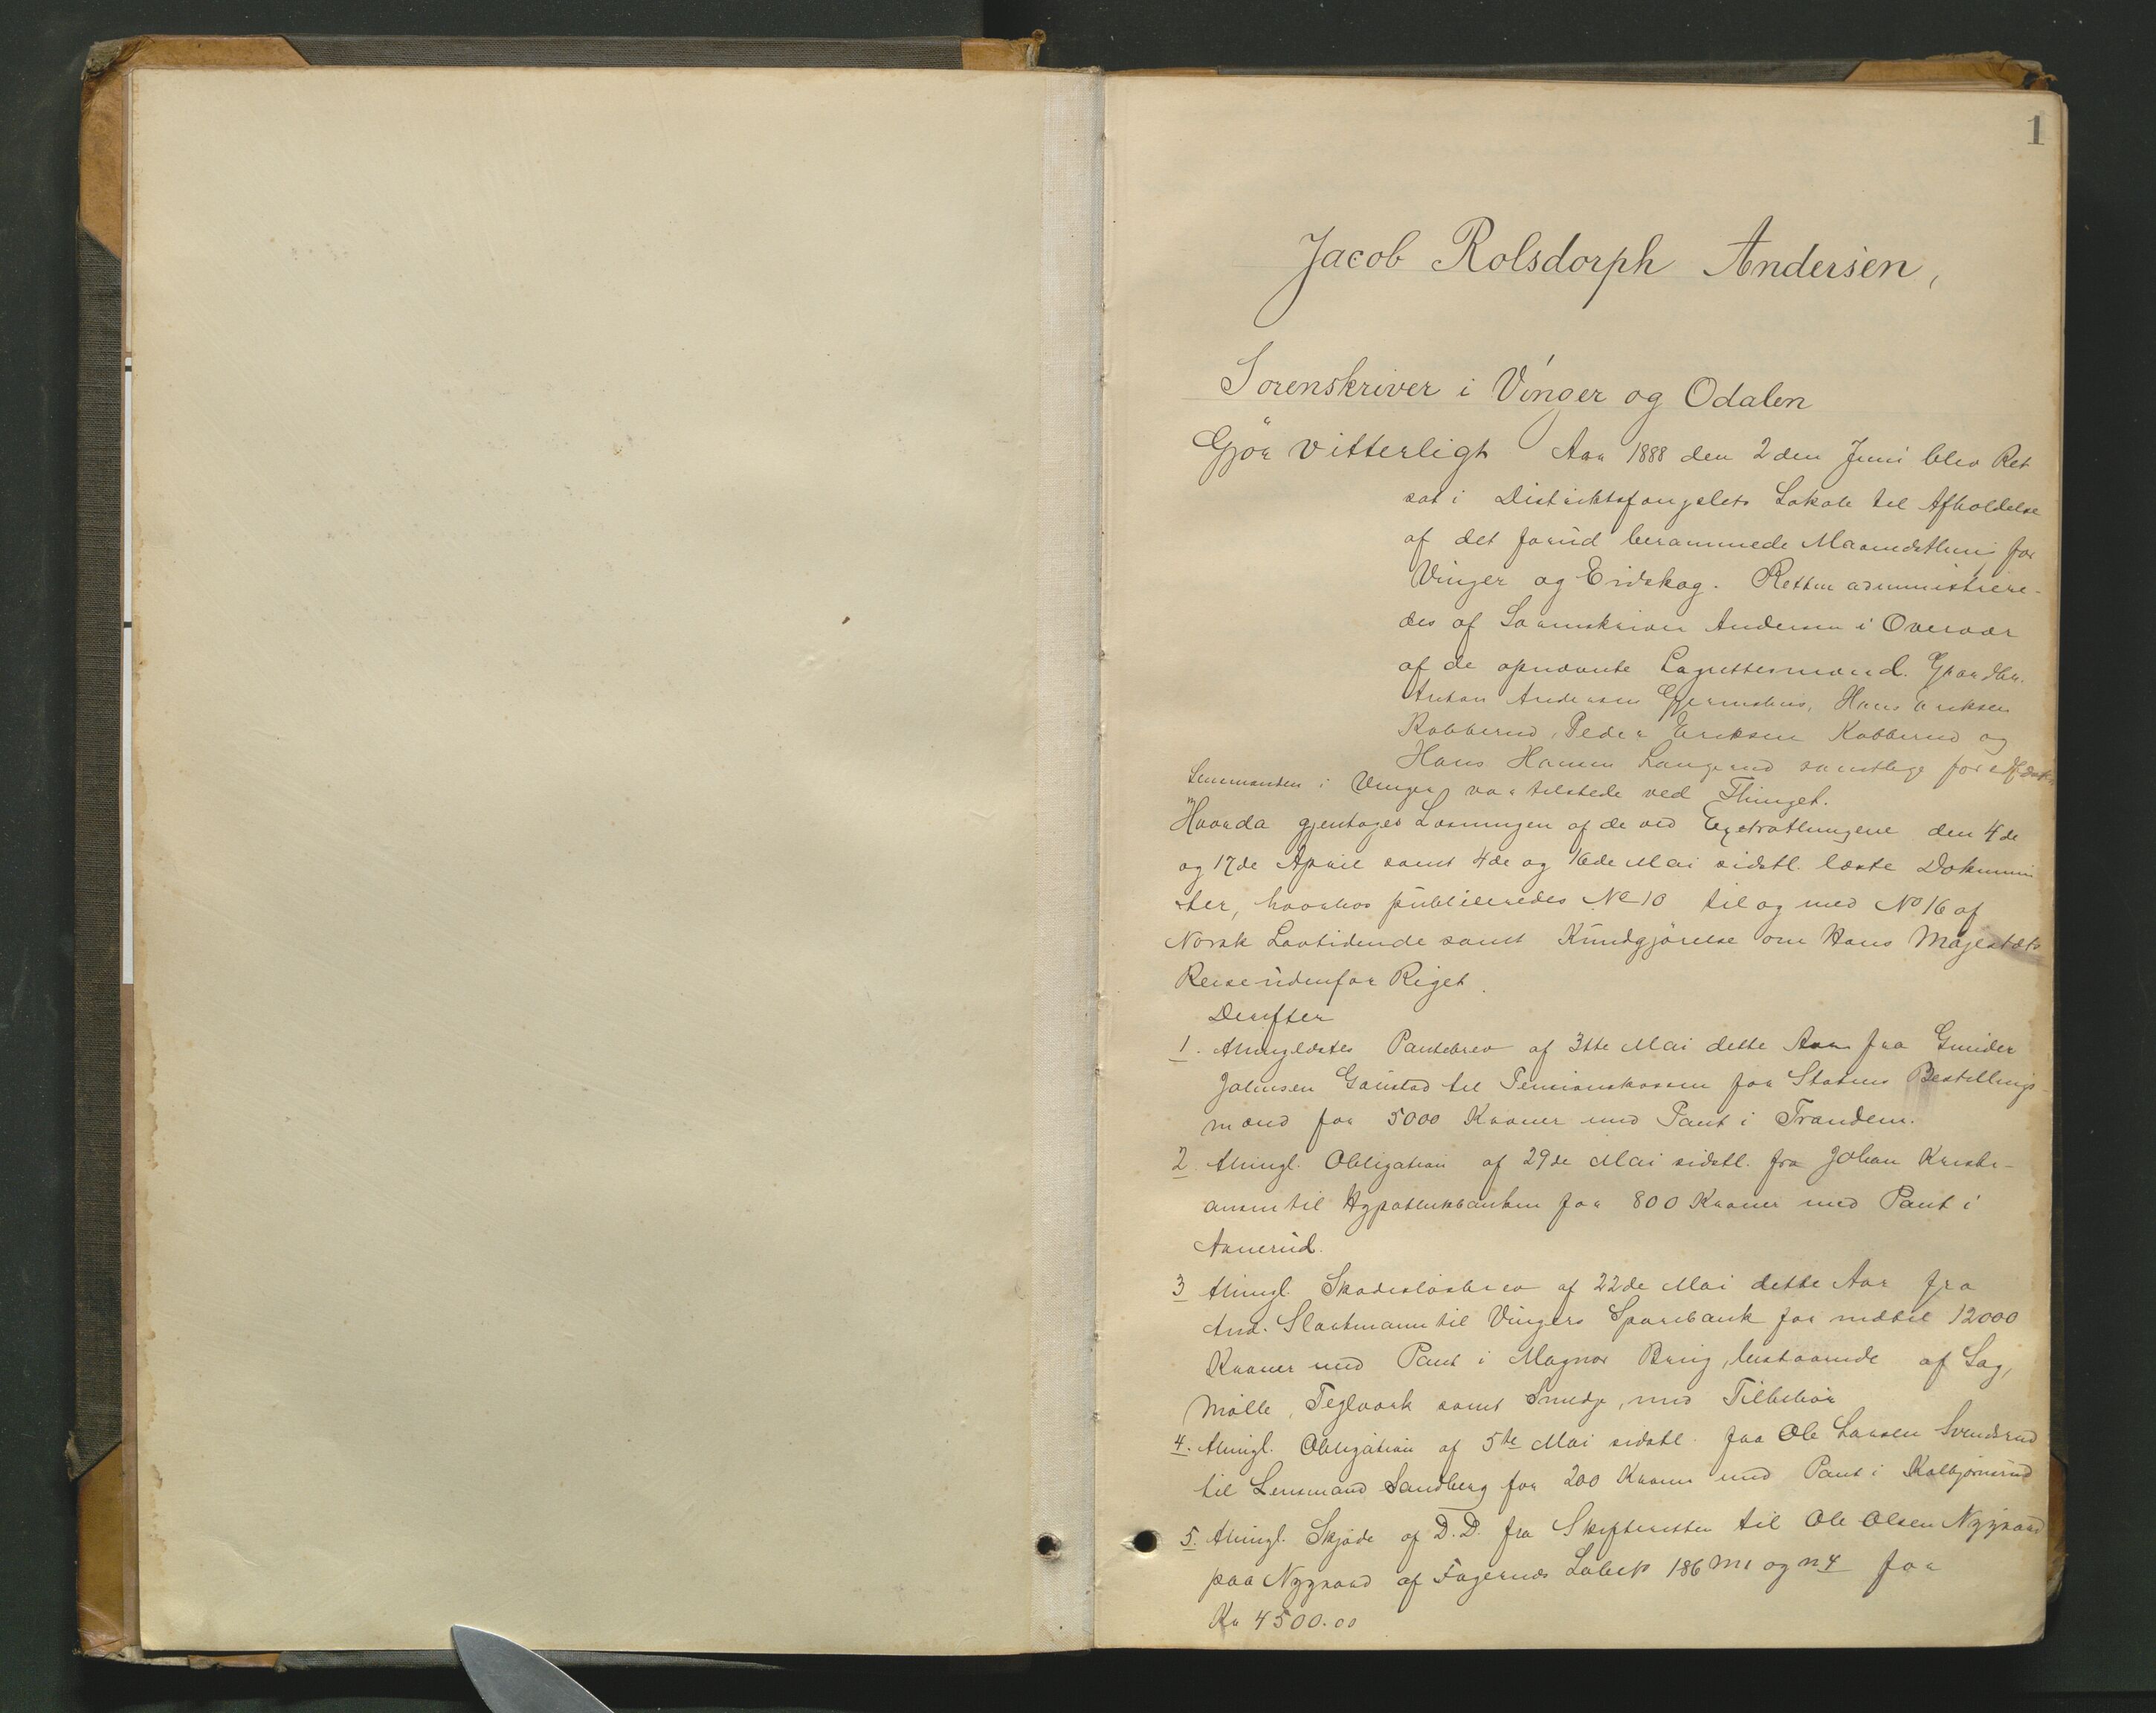 1
Jacob Rolsdorph Andersen,
Sorenskriver i Vinger og Odalen
Gjör vitterligt Aar 1888 den 2den Juni blev Ret
sat i Distriktsfængslets Lokale til Afholdelse
af det forud berammede Maanedsthing for
Vinger og Eidskog. Retten administrere-
des af Sorenskriver Andersen i Overvær
af de opnævnte Lagrettesmænd. Gaardbr.
Anton Andersen Gjermshus, Hans Eriksen
Kobberud, Peder Eriksen Kobberud og
Hans Hansen Langerud samtlige
Lensmanden i Vinger var tilstede ved Thinget.
Hvorda gjentoges Læsningen af de ved Extrathingene den 4de
og 17de April samt 4de og 16de Mai sidstl. læste Dokumen
ter, hvorhos publiceredes No 10 til og med No 16 af
Norsk Lovtidende samt Kundgjörelse om Hans Majestæts
Reise udenfor Riget.
Derefter
1. thinglæstes Pantebrev af 3tte Mai dette Aar fra Gunder
Johnsen Gaustad til Pensionskassen for Statens Bestillings-
mænd for 5000 Kroner med Pant i Trandem.
2. thingl. Obligation af 29de Mai sidstl. fra Johan Kristi-
ansen til Hypothekbanken for 800 Kroner med Pant i
Aanerud.
3 thingl. Skadeslösbrev af 22de Mai dette Aar fra
And. Slaatmann til Vingers Sparebank for indtil 12000
Kroner med Pant i Magnor Brug, bestaaende af Sag,
Mölle, Teglværk samt Smedje, med Tilbehör
4. thingl. Obligation af 5te Mai sidstl. fra Ole Larsen Svendsrud
til Lensmand Sandberg for 200 Kroner med Pant i Kolbjörnsrud
5. thingl. Skjöde af D.D. fra Skifteretten til Ole Olsen Nygaard
paa Nygaard af Fagernes Löbe No 186 m1 og n4 for
Kr 4500.00